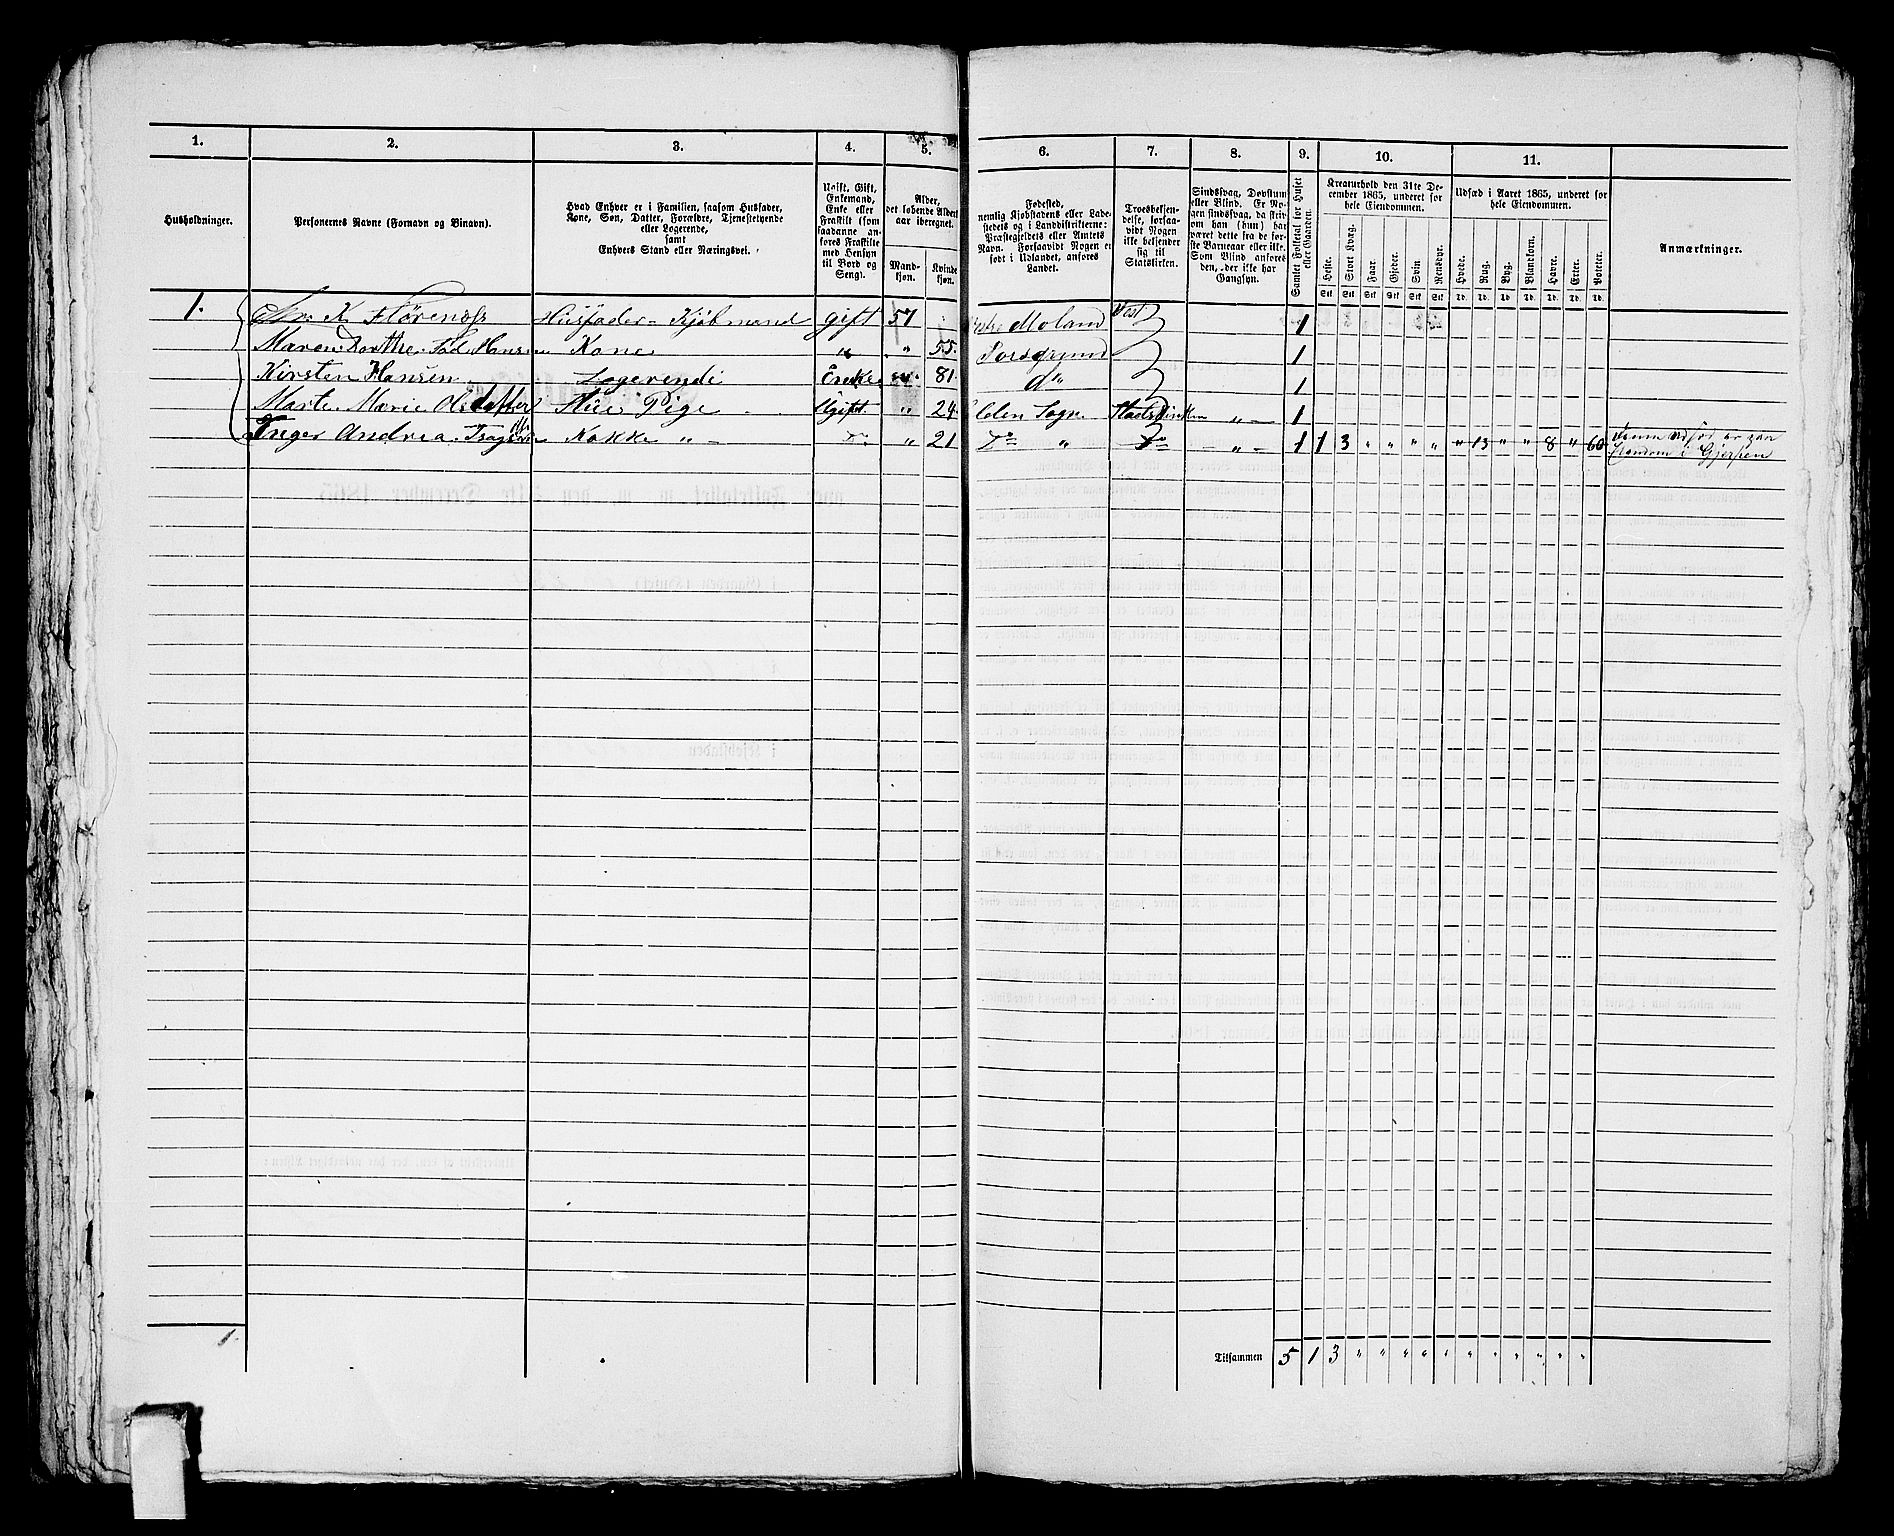 1. 2. 3. 4. 5. 6. 7. 8. 9. 10. 11.
Husholdninger.
Personernes Navne (Fornavn og Binavn).
Hvad Enhver er i Familien, saasom Husfader,
Kone, Søn, Datter, Forældre, Tjenestetyende
eller Logerende,
samt
Enhvers Stand eller Næringsvei.
Ugift, Gift,
Enkemand,
Enke eller
Fraskilt (som
saadanne an-
føres Fraskilte
med Hensyn
til Bord og
Seng).
Alder,
det løbende Alders-
aar iberegnet.
Mand-
kjøn.
Kvinde-
kjøn.
Fødested,
nemlig Kjøbstadens eller Lade-
stedets og i Landdistrikterne:
Præstegjeldets eller Amtets
Navn. Forsaavidt Nogen er
født i Udlandet, anføres
Landet.
Troesbekjen-
delse, forsaa-
vidt Nogen
ikke bekjender
sig til
Statskirken.
Sindssvag, Døvstum
eller Blind. Er No-
gen sindssvag, da skriv
om han (hun) har
været dette fra de før-
ste Barneaar eller ikke.
Som Blind anføres
den, der ikke har
Gangsyn.
Samlet Folketal for Huset
eller Gaarden.
Kreaturhold den 31te De-
cember 1865, underet for
hele Eiendommen.
Heste. Stort Kvæg. Faar. Gjeder. Svin Rensdyr.
Stk Stk Stk Stk Stk Stk
Udsæd i Aaret 1865, underet for
hele Eiendommen.
Hvede. Rug. Byg. Blankorn. Havre. Erter. Poteter.
Td. Td. Td. Td. Td. Td. Td.
Anmærkninger.
1. K Flørenæss Husfader - Kjøbmand gift 57 Moland 1
Maren Dorthe Hansen Kone " " 55. Porsgrund 1
Kirsten Hansen Logerendi Enke " 81. do 1
Marte Marie Olsdatter Pige Ugift " 24. Sogn Statskirken " 1
Inger Andrea Kokke " - Do " 21 Do " Do " 1 1 3 " " " " " 13 " " 8 " 60
i Gjerpen
1.
Tilsammen 5 1 3 " " " " " " " " " " "